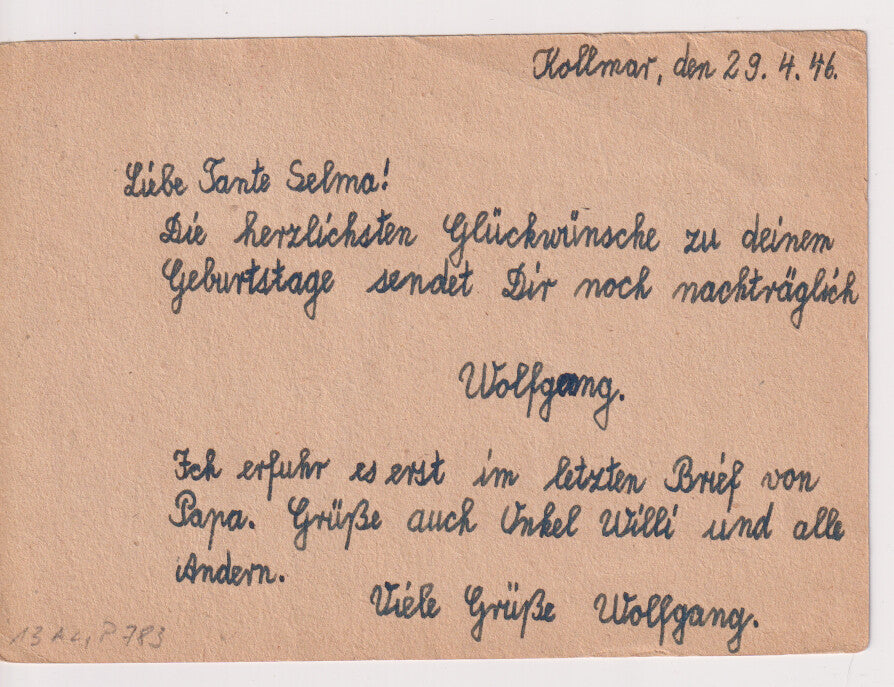 Kollmar, den 29. 4. 46.
Liebe Tante Selma!
Die herzlichsten Glückwünsche zu deinem
Geburtstage sendet Dir noch nachträglich
Wolfgang.
Ich erfuhr es erst im letzten Brief von
Papa. Grüße auch Onkel Willi und alle
Andern.
Viele Grüße Wolfgang.
13 P 783